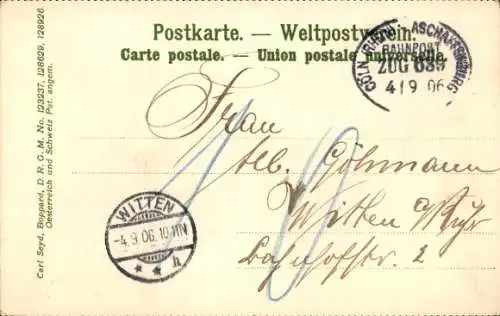 Postkarte. — Weltpostverein.
Carte postale. — Union postale universelle.
CÖLN ASCHAFFENBURG
BAHNPOST
ZUG 683
4/9 06
Frau
Alb. Göhmann
Witten Ruhr
Bahnhofstr. 2
10
WITTEN
-4.9.06.10-11N
* * h
Carl Seyd, Boppard, D. R. G. M. No. 123237, 128629, 128926.
Oesterreich und Schweiz Pat. angem.